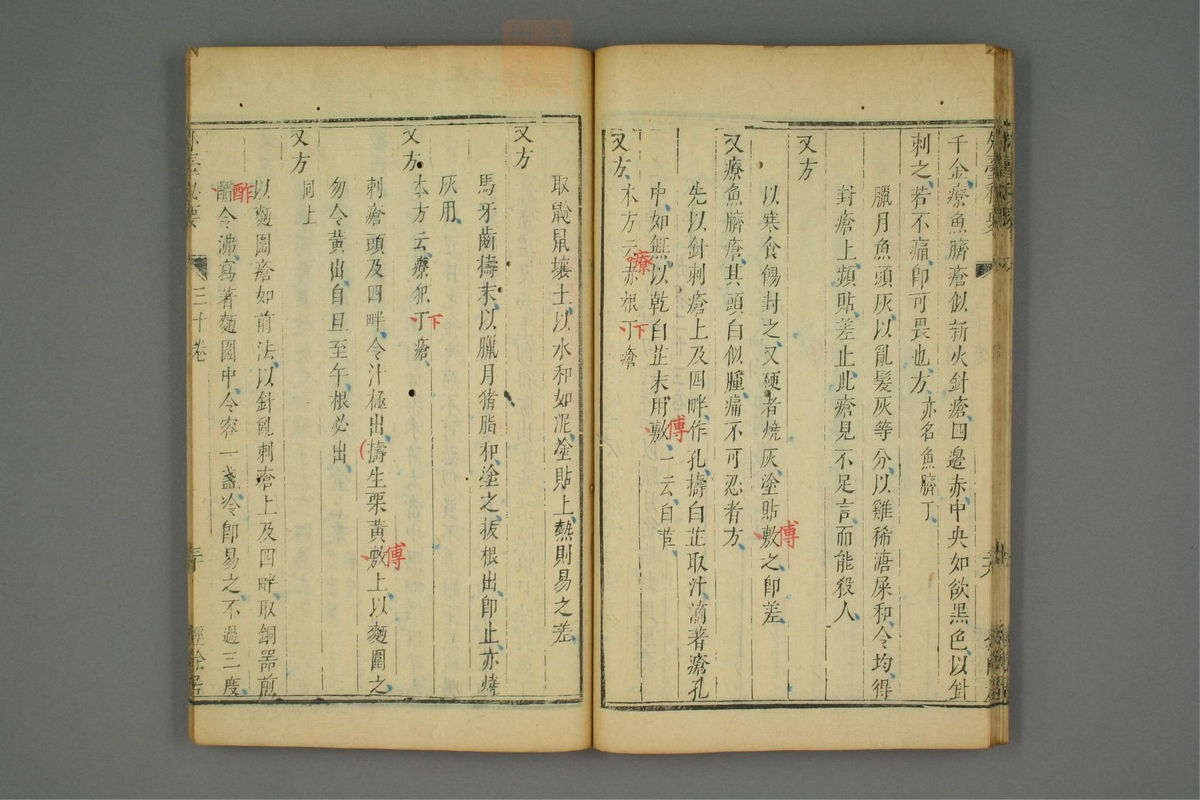 千金療魚臍瘡似新火針瘡四邊赤中央如欲黑色以針
刺之若不痛即可畏也方亦名魚臍丁
臘月魚頭灰以亂髮灰等分以雞稀溏屎和令均得
封瘡上頻貼差止此瘡見不足言而能殺人
又方
以寒食餳封之又硬者燒灰塗貼敷之即差
傅
又療魚臍瘡其頭白似腫痛不可忍者方
先以針刺瘡上及四畔作孔擣白苣取汁滴著瘡孔
中如無以乾白芷末用敷一云白苣
傅
又方本方云赤根丁瘡
療
下
取鼢鼠壤土以水和如泥塗貼上熱則易之差
又方
馬牙齒擣末以臘月猪脂和塗之拔根出即止亦燒
灰用
又方本方云療犯丁瘡
下
刺瘡頭及四畔令汁極出擣生栗黃敷上以麵圍之
傅
勿令黃出自旦至午根必出
又方同上
以麵圍瘡如前法以針亂刺瘡上及四畔取銅器煎
醋令沸寫著麵圍中令容一盞冷即易之不過三度
酢
外臺秘要
三十卷
三十
經餘居